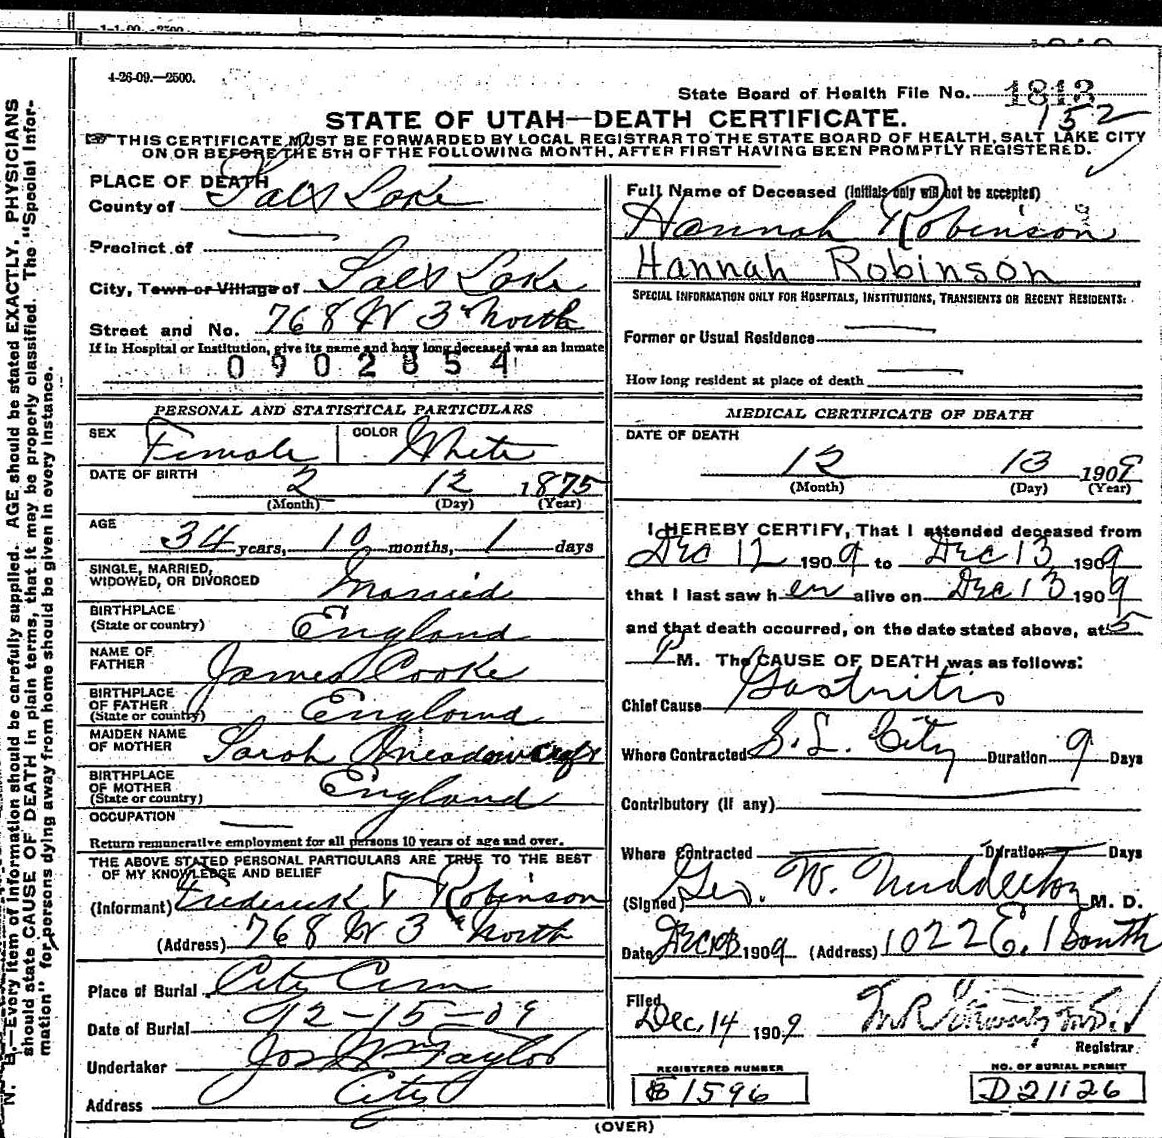 1-1-09.-2500.
4-26-09.—2500.
State Board of Health File No. 1813
152
STATE OF UTAH—DEATH CERTIFICATE.
THIS CERTIFICATE MUST BE FORWARDED BY LOCAL REGISTRAR TO THE STATE BOARD OF HEALTH, SALT LAKE CITY
ON OR BEFORE THE 5TH OF THE FOLLOWING MONTH, AFTER FIRST HAVING BEEN PROMPTLY REGISTERED.
PLACE OF DEATH
County of Salt Lake
Precinct of
City, Town or Village of Salt Lake
Street and No. 768 W 3rd North
If in Hospital or Institution, give its name and how long deceased was an inmate
0902854
PERSONAL AND STATISTICAL PARTICULARS
SEX Female COLOR White
DATE OF BIRTH 2 12 1875
(Month) (Day) (Year)
AGE 34 years, 10 months, 1 days
SINGLE, MARRIED,
WIDOWED, OR DIVORCED Married
BIRTHPLACE
(State or country) England
NAME OF
FATHER James Cooke
BIRTHPLACE
OF FATHER
(State or country) England
MAIDEN NAME
OF MOTHER Sarah Meadowcroft
BIRTHPLACE
OF MOTHER
(State or country) England
OCCUPATION
Return remunerative employment for all persons 10 years of age and over.
THE ABOVE STATED PERSONAL PARTICULARS ARE TRUE TO THE BEST
OF MY KNOWLEDGE AND BELIEF
(Informant) Frederick T Robinson
(Address) 768 W 3rd North
Place of Burial City Cem
Date of Burial 12-15-09
Undertaker Jos Wm Taylor
Address City
Full Name of Deceased (Initials only will not be accepted)
Hannah Robinson
Hannah Robinson
SPECIAL INFORMATION ONLY FOR HOSPITALS, INSTITUTIONS, TRANSIENTS OR RECENT RESIDENTS:
Former or Usual Residence
How long resident at place of death
MEDICAL CERTIFICATE OF DEATH
DATE OF DEATH
12 13 1909
(Month) (Day) (Year)
I HEREBY CERTIFY, That I attended deceased from
Dec 12 1909 to Dec 13 1909
that I last saw h er alive on Dec 13 1909
and that death occurred, on the date stated above, at 5
P M. The CAUSE OF DEATH was as follows:
Chief Cause Gastritis
Where Contracted S. L. City Duration 9 Days
Contributory (if any)
Where Contracted Duration Days
(Signed) Geo. W. Middleton M. D.
Date Dec 13 1909 (Address) 1022 E. 1 South
Filed
Dec. 14 1909
Registrar
REGISTERED NUMBER
B 1596
NO. OF BURIAL PERMIT
D 21126
(OVER)
N. B.—Every item of information should be carefully supplied. AGE should be stated EXACTLY. PHYSICIANS
should state CAUSE OF DEATH in plain terms, that it may be properly classified. The "Special Infor-
mation" for persons dying away from home should be given in every instance.